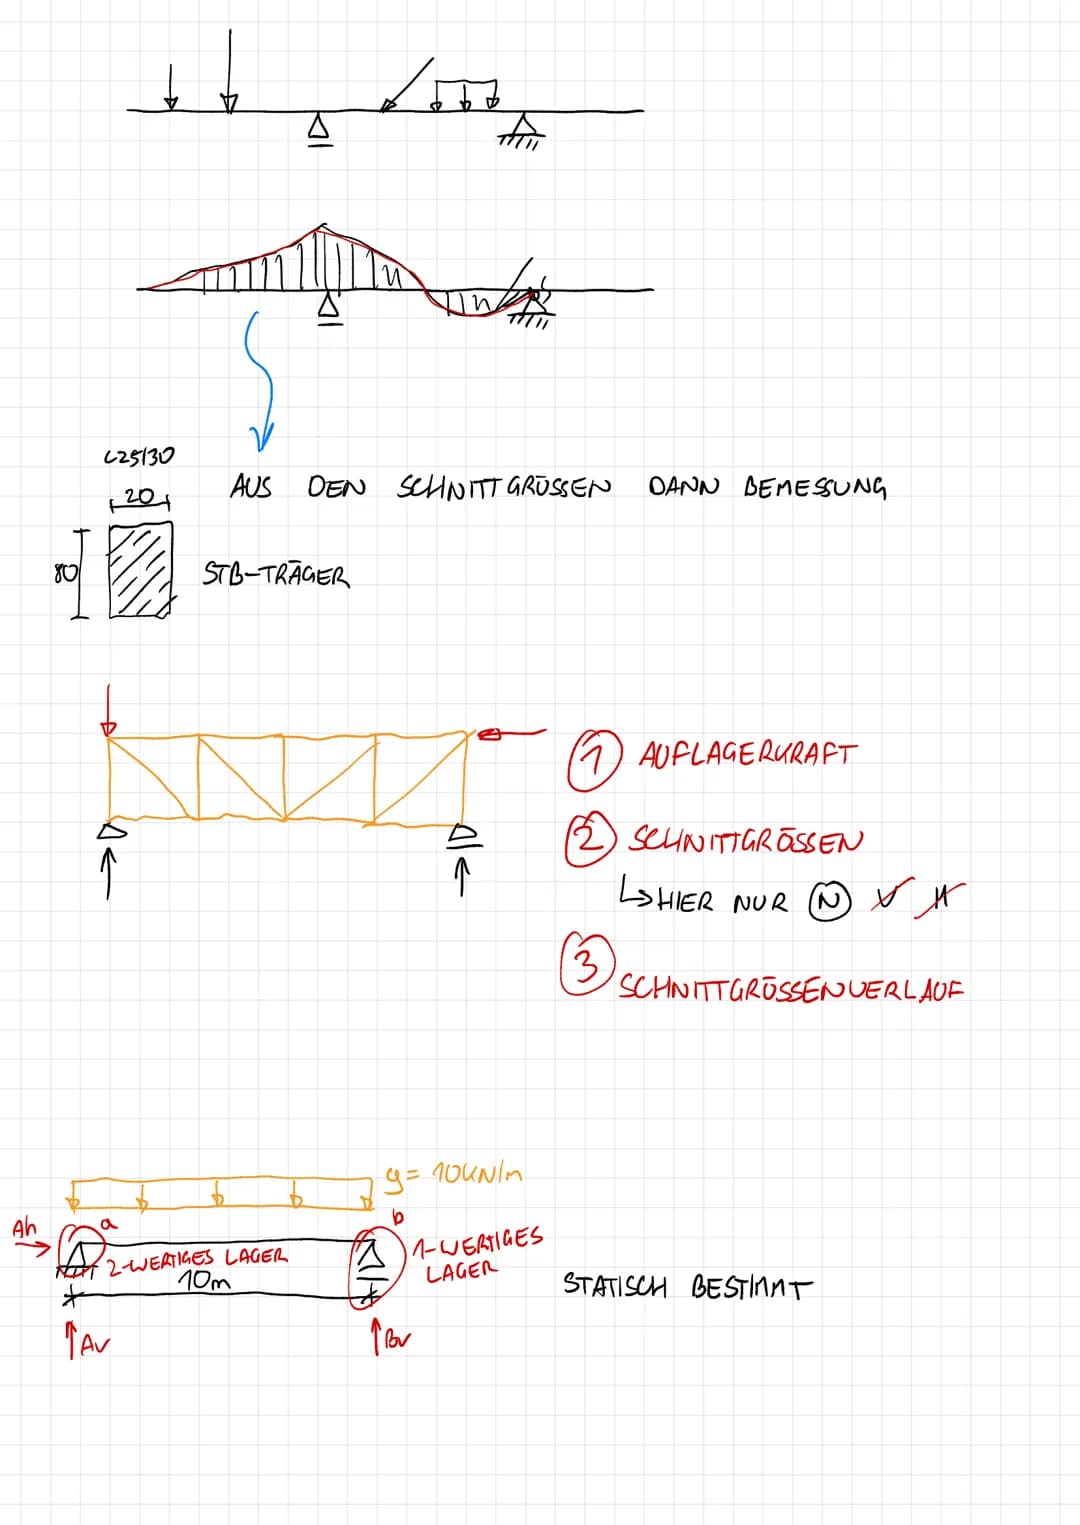 C25/30
20
AUS DEN SCHNITTGRÖSSEN DANN BEMESSUNG
80
STB-TRÄGER
1 AUFLAGERKRAFT
2 SCHNITTGRÖSSEN
↳ HIER NUR N V M
3
SCHNITTGRÖSSENVERLAUF
g = 10KN/m
Ah
a
b
2-WERTIGES LAGER
1-WERTIGES
LAGER
10m
STATISCH BESTIMMT
Av
Bv